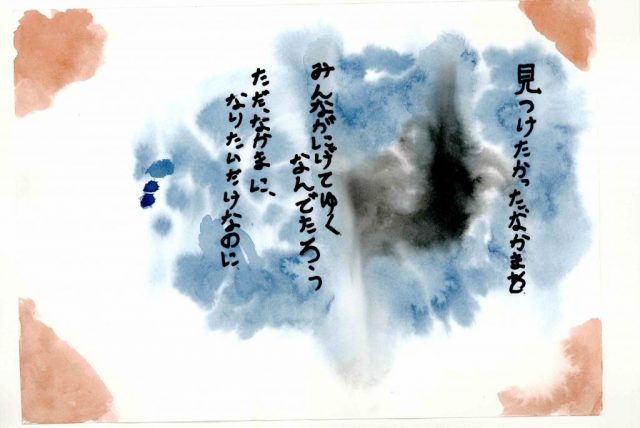 見つけたかったなかまを
みんながにげてゆく
なんでだろう
ただ、なかまに、
なりたいだけなのに